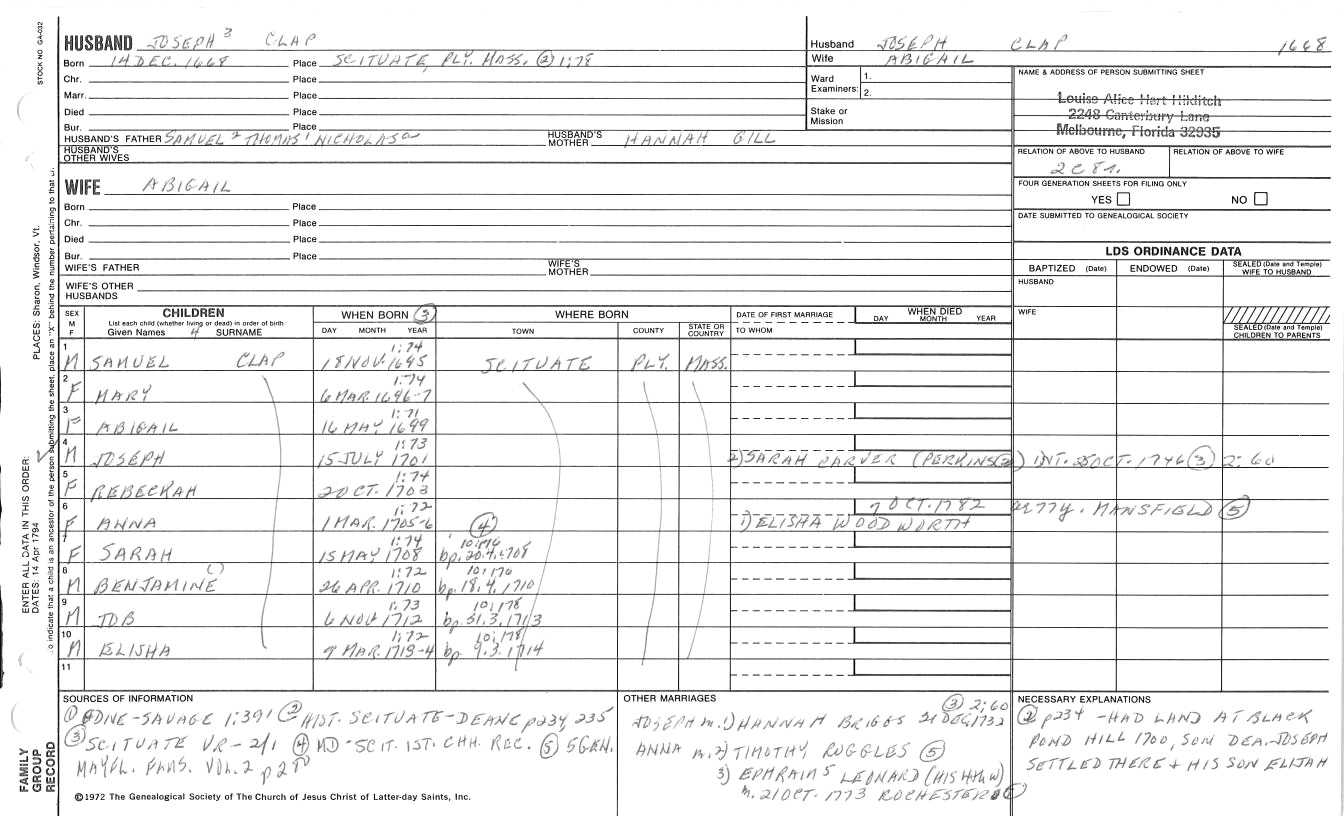 STOCK NO. GA-032
PLACES: Sharon, Windsor, Vt.
ENTER ALL DATA IN THIS ORDER:
DATES: 14 Apr 1794
to indicate that a child is an ancestor of the person submitting the sheet, place an "X" behind the number pertaining to that
FAMILY GROUP RECORD
HUSBAND JOSEPH 3 CLAP
Born 14 DEC. 1668 Place SCITUATE, PLY. MASS. (2) 1:78
Chr. Place
Marr. Place
Died Place
Bur. Place
HUSBAND'S FATHER SAMUEL 2 THOMAS 1 NICHOLAS a HUSBAND'S MOTHER HANNAH GILL
HUSBAND'S OTHER WIVES
WIFE ABIGAIL
Born Place
Chr. Place
Died Place
Bur. Place
WIFE'S FATHER WIFE'S MOTHER
WIFE'S OTHER HUSBANDS
Husband JOSEPH CLAP 1668
Wife ABIGAIL
Ward Examiners: 1.
2.
Stake or Mission
NAME & ADDRESS OF PERSON SUBMITTING SHEET
Louise Alice Hart Hilditch
2248 Canterbury Lane
Melbourne, Florida 32935
RELATION OF ABOVE TO HUSBAND RELATION OF ABOVE TO WIFE
2C8r.
FOUR GENERATION SHEETS FOR FILING ONLY
YES NO
DATE SUBMITTED TO GENEALOGICAL SOCIETY
LDS ORDINANCE DATA
BAPTIZED (Date) ENDOWED (Date) SEALED (Date and Temple) WIFE TO HUSBAND
HUSBAND
WIFE
SEALED (Date and Temple) CHILDREN TO PARENTS
SEX M F CHILDREN List each child (whether living or dead) in order of birth Given Names 4 SURNAME WHEN BORN (3) DAY MONTH YEAR WHERE BORN TOWN COUNTY STATE OR COUNTRY DATE OF FIRST MARRIAGE TO WHOM WHEN DIED DAY MONTH YEAR
1 M SAMUEL CLAP 1:74 18 NOV. 1695 SCITUATE PLY. MASS.
2 F MARY 1:74 6 MAR. 1696-7
3 F ABIGAIL 1:71 16 MAY 1699
4 M JOSEPH 1:73 15 JULY 1701 2) SARAH CARVER (PERKINS(2)) INT. 25 OCT. 1746 (3) 2:60
5 F REBECKAH 1:74 2 OCT. 1703
6 F ANNA 1:72 1 MAR. 1705-6 (4) 7 OCT. 1782
1) ELISHA WOODWORTH MANSFIELD (5)
7 F SARAH 1:74 15 MAY 1708 bp. 20.4.1708
8 M BENJAMINE ( ) 1:72 26 APR. 1710 10:176 bp. 18.4.1710
9 M JOB 1:73 6 NOV. 1712 10:178 bp. 31.3.1713
10 M ELISHA 1:72 9 MAR. 1713-4 10:178 bp. 9.3.1714
11
SOURCES OF INFORMATION
(1) SAVAGE 1:391 (2) HIST. SCITUATE-DEANE p234, 235
(3) SCITUATE VR-2/1 (4) MD-SCIT. 1ST. CHH. REC. (5) 5GEN.
MAYFL. FAMS. VOL. 2
©1972 The Genealogical Society of The Church of Jesus Christ of Latter-day Saints, Inc.
OTHER MARRIAGES
(3) 2:60
JOSEPH m. 1) HANNAH BRIGGS 21 DEC 1732
ANNA m. 2) TIMOTHY RUGGLES (5)
3) EPHRAIM 5 LEONARD (HIS 4th W)
m. 21 OCT. 1773 ROCHESTER
NECESSARY EXPLANATIONS
(2) p234 - HAD LAND AT BLACK
POND HILL 1700, SON DEA. JOSEPH
SETTLED THERE + HIS SON ELIJAH